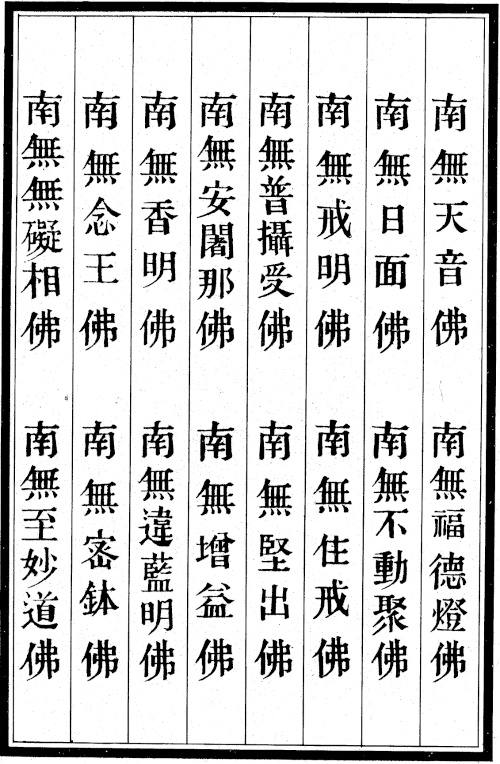 南無天音佛 南無福德燈佛
南無日面佛 南無不動聚佛
南無戒明佛 南無住戒佛
南無普攝受佛 南無堅出佛
南無安闍那佛 南無增益佛
南無香明佛 南無違藍明佛
南無念王佛 南無密鉢佛
南無無礙相佛 南無至妙道佛